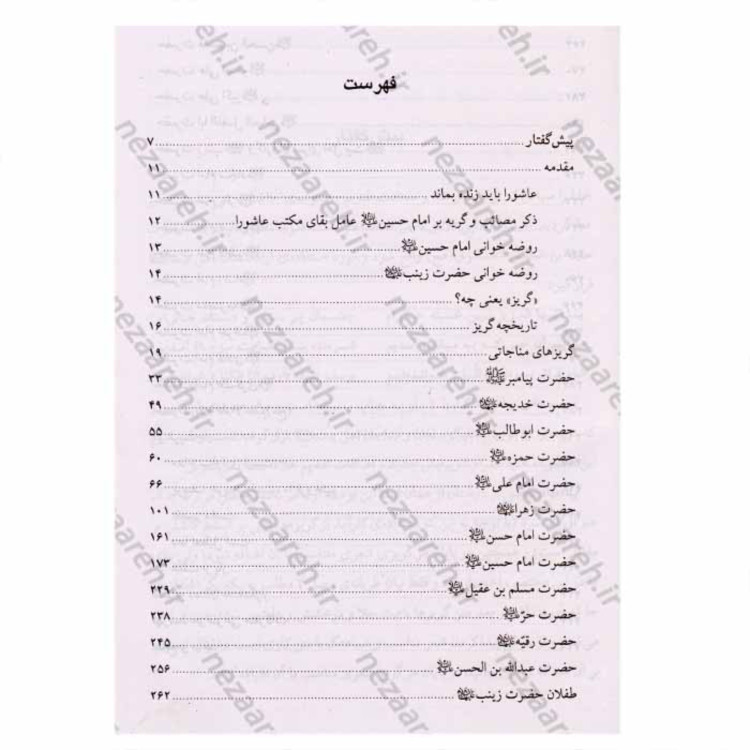 فهرست
پیش‌گفتار ........ ۷
مقدمه ........ ۱۱
عاشورا باید زنده بماند ........ ۱۱
ذکر مصائب و گریه بر امام حسین علیه‌السلام عامل بقای مکتب عاشورا ........ ۱۲
روضه خوانی امام حسین علیه‌السلام ........ ۱۳
روضه خوانی حضرت زینب علیهاالسلام ........ ۱۴
«گریز» یعنی چه؟ ........ ۱۴
تاریخچه گریز ........ ۱۶
گریزهای مناجاتی ........ ۱۹
حضرت پیامبر ﷺ ........ ۳۳
حضرت خدیجه علیهاالسلام ........ ۴۹
حضرت ابوطالب علیه‌السلام ........ ۵۵
حضرت حمزه علیه‌السلام ........ ۶۰
حضرت امام علی علیه‌السلام ........ ۶۶
حضرت زهرا علیهاالسلام ........ ۱۰۱
حضرت امام حسن علیه‌السلام ........ ۱۶۱
حضرت امام حسین علیه‌السلام ........ ۱۷۳
حضرت مسلم بن عقیل علیه‌السلام ........ ۲۲۹
حضرت حرّ علیه‌السلام ........ ۲۳۸
حضرت رقیّه علیهاالسلام ........ ۲۴۵
حضرت عبدالله بن الحسن علیه‌السلام ........ ۲۵۶
طفلان حضرت زینب علیهاالسلام ........ ۲۶۲
nezaareh.ir